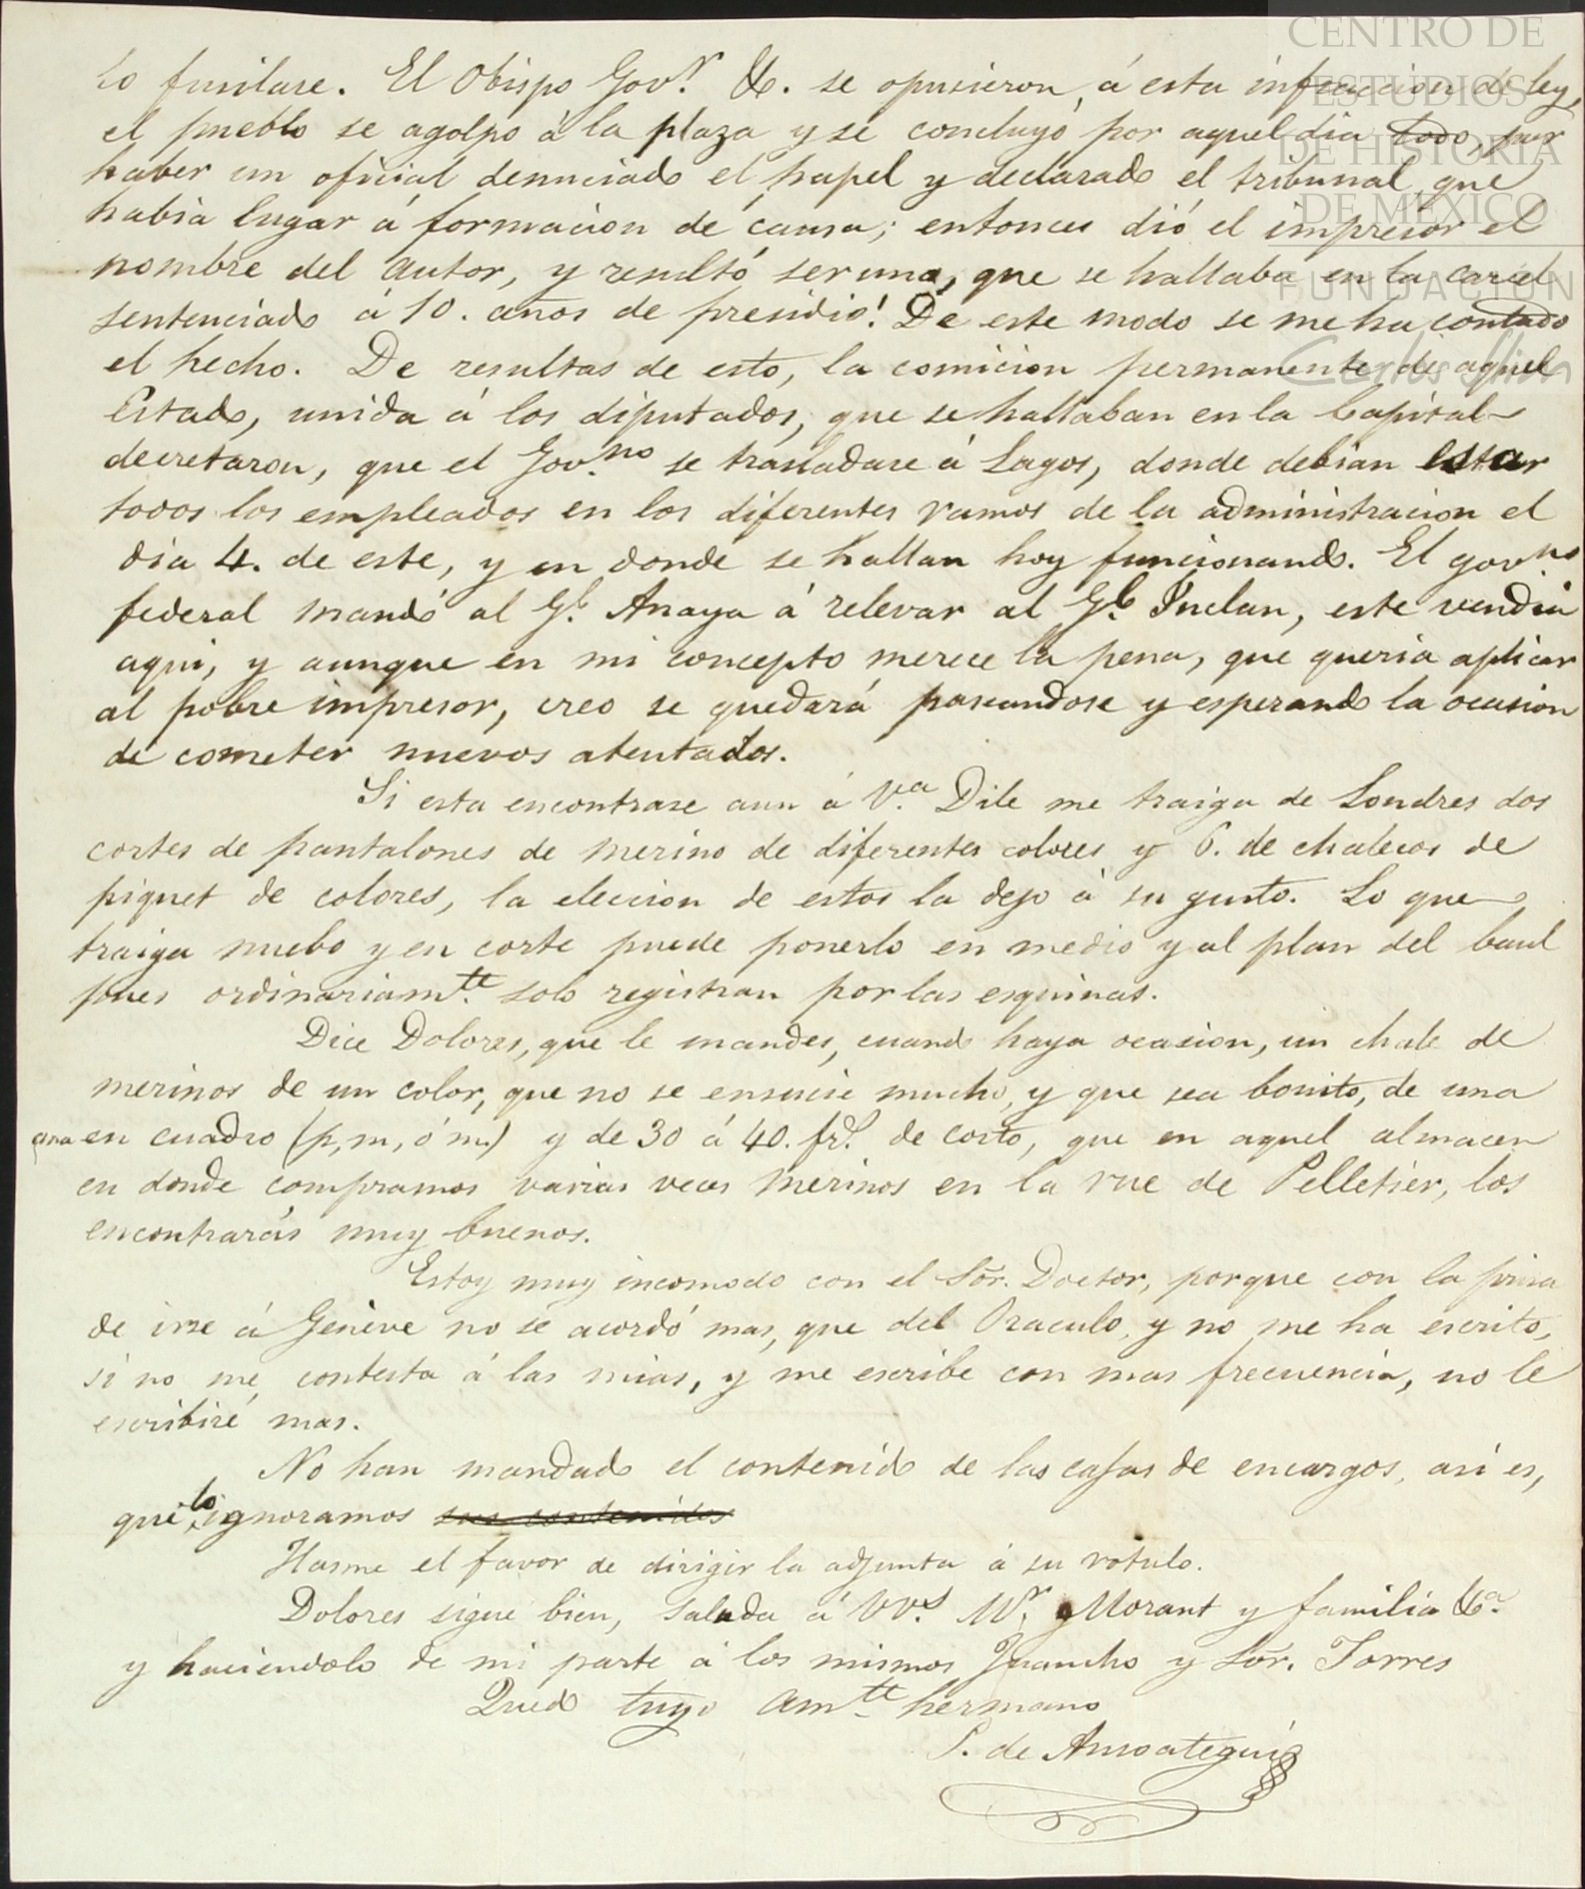 lo fusilase. El Obispo Gov.r &c. se opusieron, á esta infraccion de ley,
el pueblo se agolpo à la plaza y se concluyó por aquel dia todo, por
haber un oficial denunciado el papel y declarado el tribunal, que
habia lugar á formacion de causa; entonces dió el impresor el
nombre del autor, y resultó ser uno, que se hallaba en la carcel
sentenciado á 10. años de presidio! De este modo se me ha contado
el hecho. De resultas de esto, la comicion permanente de aquel
Estado, unida á los diputados, que se hallaban en la Capital
decretaron, que el Gov.no se trasladase á Lagos, donde debian estar
todos los empleados en los diferentes ramos de la administracion el
dia 4. de este, y en donde se hallan hoy funcionando. El gov.no
federal mandó al G.l Anaya á relevar al G.l Inclan, este vendrá
aqui, y aunque en mi concepto merece la pena, que queria aplicar
al pobre impresor, creo se quedará paseandose y esperando la ocasion
de cometer nuevos atentados.
Si esta encontrase aun á V.a Dile me traiga de Londres dos
cortes de pantalones de merino de diferentes colores y 6. de chalecos de
piquet de colores, la eleccion de estos la dejo à su gusto. Lo que
traiga nuebo y en corte puede ponerlo en medio y al plan del baul
pues ordinariam.te solo registran por las esquinas.
Dice Dolores, que le mandes, cuando haya ocasion, un chale de
merinos de un color, que no se ensucie mucho, y que sea bonito, de una
ana en cuadro (p, m, ó m.) y de 30 á 40. frs. de costo, que en aquel almacen
en donde compramos varias veces merinos en la rue de Pelletier, los
encontrarás muy buenos.
Estoy muy incomodo con el Sõr. Doctor, porque con la prisa
de irse á Genève no se acordó mas, que del Oraculo, y no me ha escrito,
si no me contesta á las mias, y me escribe con mas frecuencia, no le
escribiré mas.
No han mandado el contenido de las cajas de encargos, asi es,
que lo ignoramos sus contenidos
Hasme el favor de dirigir la adjunta á su rotulo.
Dolores sigue bien, saluda á VV.s M.r Morant y familia &.a
y haciendolo de mi parte á los mismos Juancho y Sõr. Torres
Quedo tuyo am.te hermano
P. de Ansoategui
CENTRO DE
ESTUDIOS
DE HISTORIA
DE MÉXICO
FUNDACIÓN
Carlos Slim